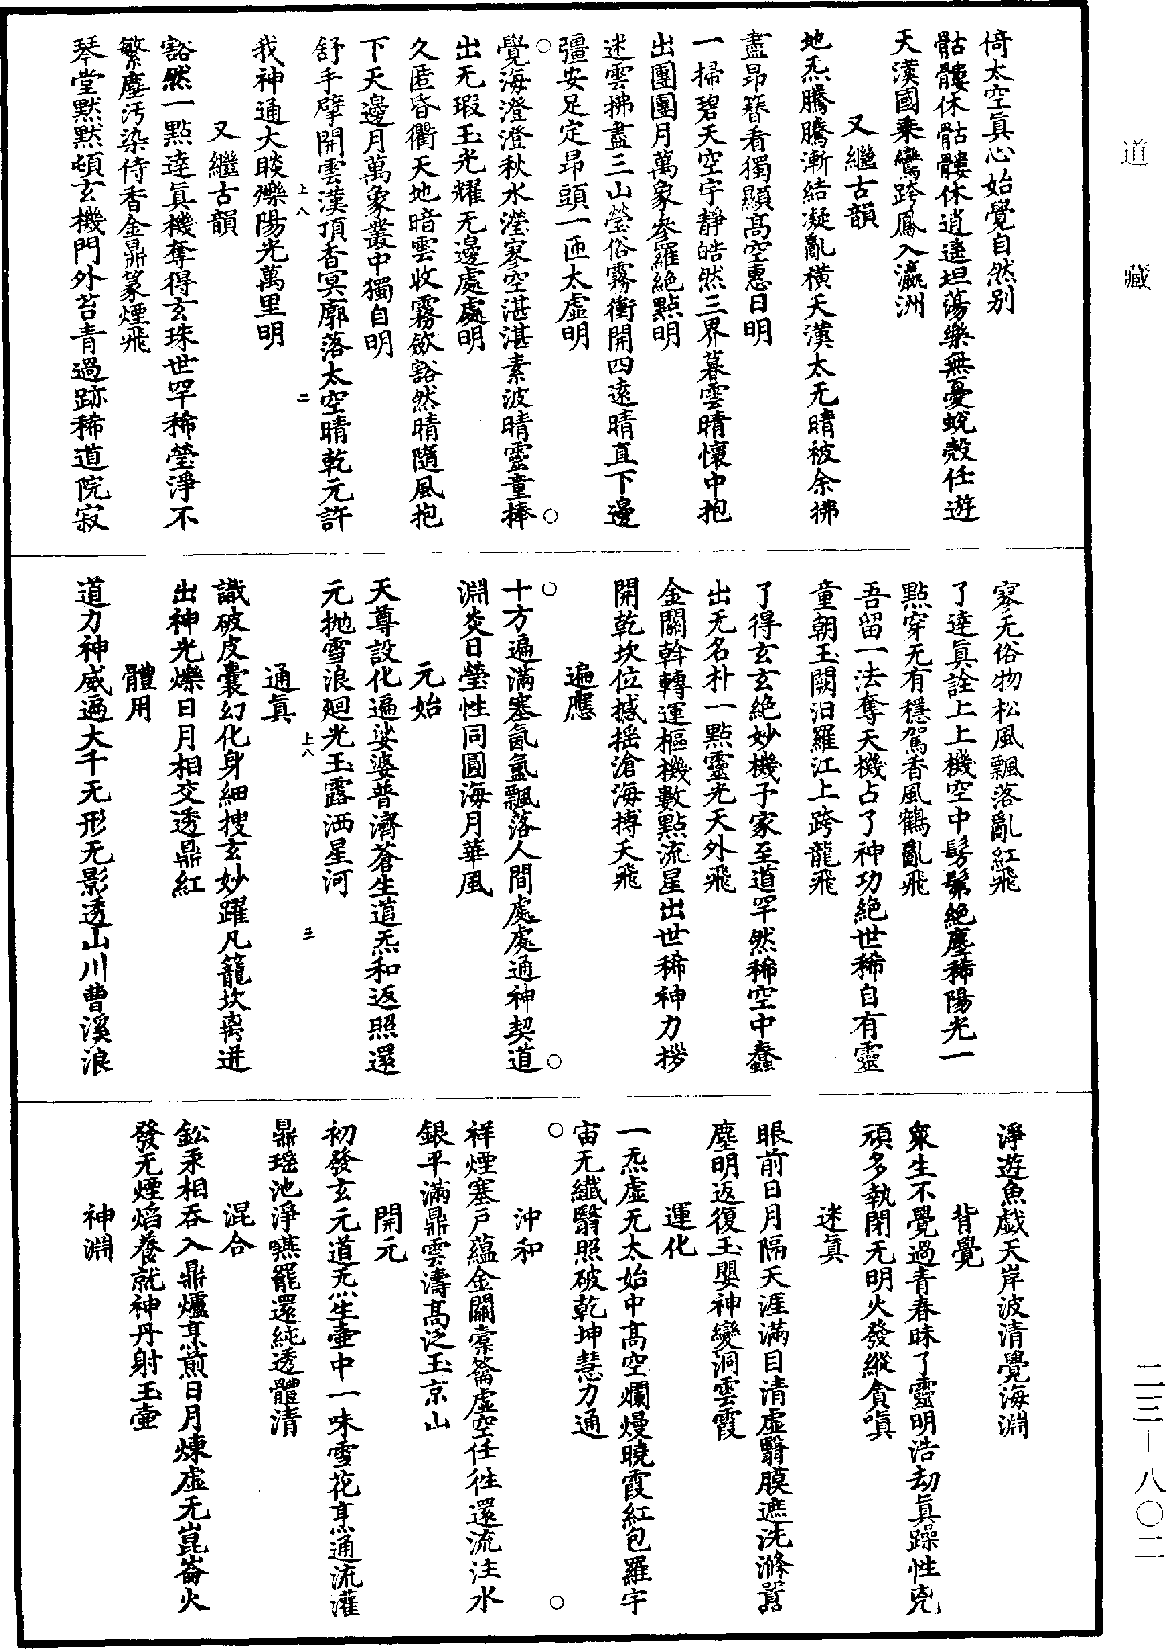 道藏
二三—八〇二
倚太空真心始覺自然別
骷髏休骷髏休逍遙坦蕩樂無憂蛻殼任遊
天漢國乘鸞跨鳳入瀛洲
又繼古韻
地炁騰騰漸結凝亂橫天漢太无晴被余拂
盡昂簪看獨顯高空惠日明
一掃碧天空宇靜皓然三界暮雲晴懷中抱
出團團月萬象參羅絶點明
迷雲拂盡三山瑩俗霧衝開四遠晴直下邊
彊安足定昂頭一匝太虛明
覺海澄澄秋水瀅寒空湛湛素波晴靈童捧
出无瑕玉光耀无邊處處明
久匿昏衢天地暗雲收霧斂豁然晴隨風抱
下天邊月萬象叢中獨自明
舒手擘開雲漢頂杳冥廓落太空晴乾元許
上八 二
我神通大睒爍陽光萬里明
又繼古韻
豁然一點達真機奪得玄珠世罕稀瑩淨不
繁塵污染侍香金鼎篆煙飛
琴堂黙黙頓玄機門外苔青過跡稀道院寂
寥无俗物松風飄落亂紅飛
了達真詮上上機空中髣髴絶塵稀陽光一
點穿无有穩駕香風鶴亂飛
吾留一法奪天機占了神功絶世稀自有靈
童朝玉闕汨羅江上跨龍飛
了得玄玄絶妙機予家至道罕然稀空中蠢
出无名朴一點靈光天外飛
金關斡轉運樞機數點流星出世稀神力拶
開乾坎位撼摇滄海摶天飛
遍應
十方遍滿塞氤氳飄落人間處處通神契道
淵炎日瑩性同圓海月華風
元始
天尊設化遍娑婆普濟蒼生道炁和返照還
元抛雪浪廻光玉露洒星河
上八 三
通真
識破皮囊幻化身細搜玄妙躍凡籠坎离迸
出神光爍日月相交透鼎紅
體用
道力神威遍大千无形无影透山川曹溪浪
淨遊魚戲天岸波清覺海淵
背覺
衆生不覺過青春昧了靈明浩劫真躁性兇
頑多執閉无明火發縱貪嗔
迷真
眼前日月隔天涯滿目清虛翳膜遮洗滌囂
塵明返復玉嬰神變洞雲霞
運化
一炁虛无太始中高空爛熳曉霞紅包羅宇
宙无纖翳照破乾坤慧力通
沖和
祥煙塞戶蘊金關橐籥虛空任徃還流注水
銀平滿鼎雲濤高泛玉京山
開元
初發玄元道炁生壷中一味雪花烹通流灌
鼎瑶池淨嚥罷還純透體清
混合
鈆汞相吞入鼎爐烹煎日月煉虛无崑崙火
發无煙焰養就神丹射玉壷
神淵